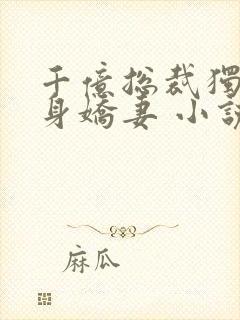 千億总裁獨
身嬌妻 小說
麻瓜